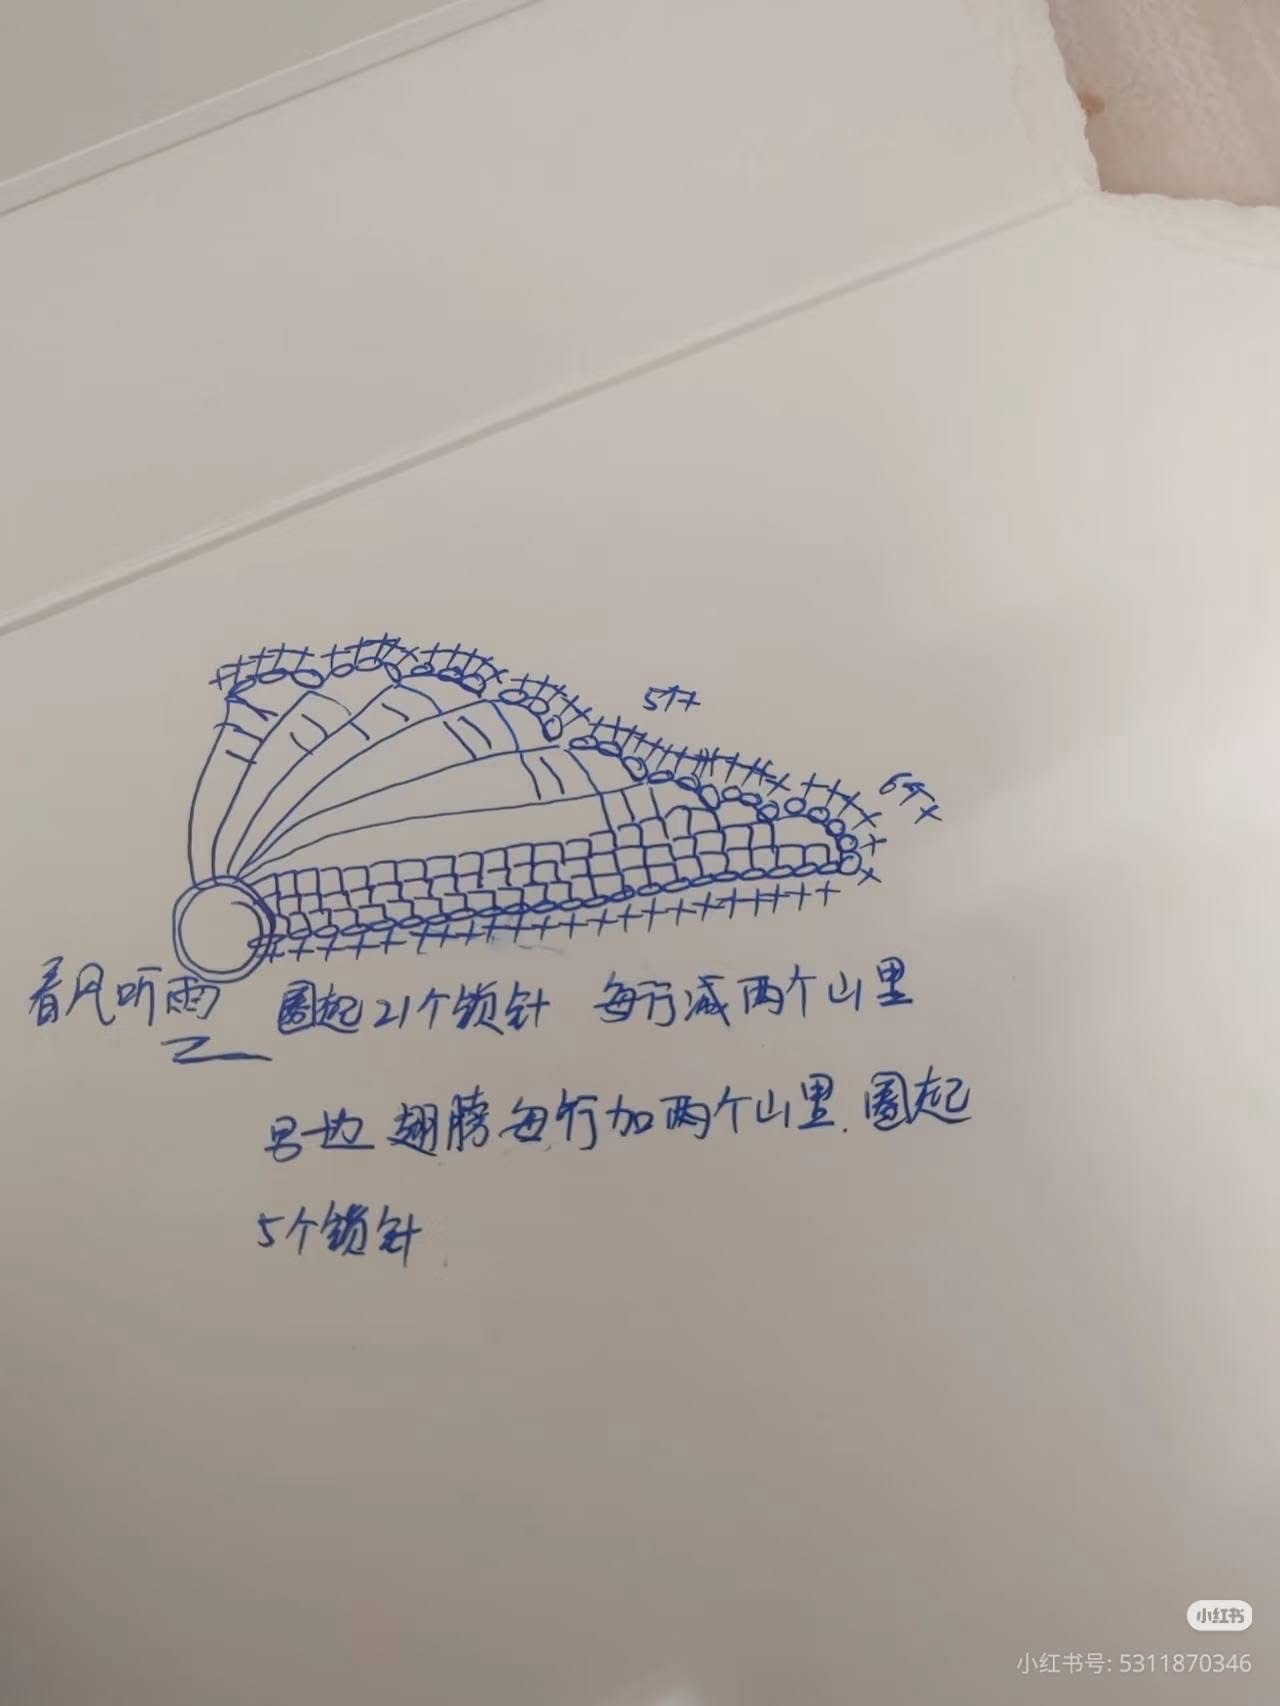 5个x
6个x
看风听雨
圈起21个锁针 每行减两个山里
另一边 翅膀每行加两个山里.圈起
5个锁针
小红书
小红书号: 5311870346